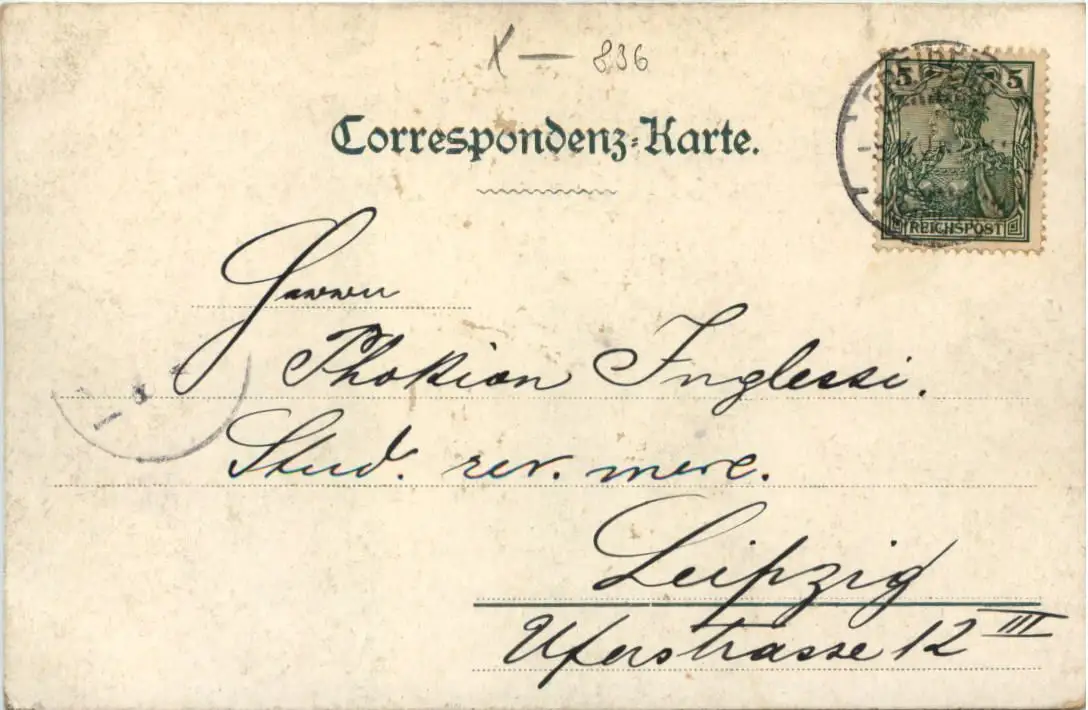 X — 836
5 5
REICHSPOST
Correspondenz-Karte.
Herrn
Phokion Inglessi.
Stud. rer. merc.
Leipzig
Uferstrasse 12 III